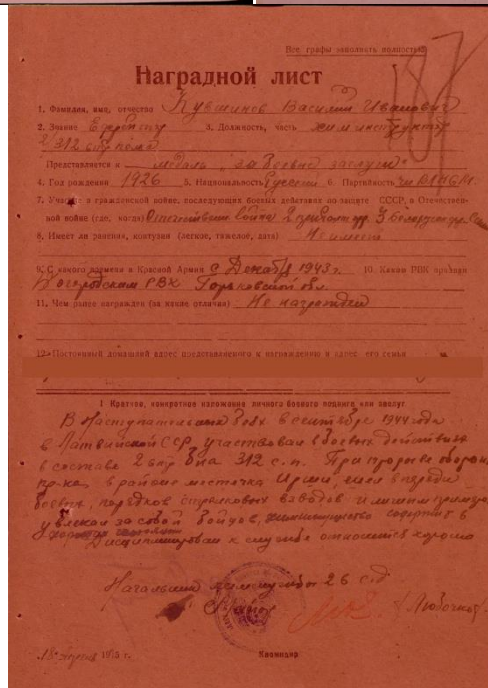 Все графы заполнять полностью
187
Наградной лист
1. Фамилия, имя, отчество Кувшинов Василий Иванович
2. Звание Ефрейтор 3. Должность, часть химинструктор
2/312
Представляется к медаль „За боевые заслуги"
4. Год рождения 1926 5. Национальность Русский 6. Партийность чл ВЛКСМ
7. Участие в гражданской войне, последующих боевых действиях по защите СССР, в Отечествен-
ной войне (где, когда) Отечествен. война 2 прибалт. фр. 3 белорус. фр.
8. Имеет ли ранения, контузии (легкое, тяжелое, дата) Не имеет
9. С какого времени в Красной Армии с Декабря 1943 г. 10. Каким РВК призван
Богородским РВК Горьковской обл.
11. Чем ранее награжден (за какие отличия) Не награжден
12. Постоянный домашний адрес представляемого к награждению и адрес его семьи
I Краткое, конкретное изложение личного боевого подвига или заслуг
В наступательных боях в сентябре 1944 года
в Латвийской ССР, участвовал в боевых действиях
в составе 312 с.п. При прорыве обороны
пр-ка, в районе местечка шел впереди
боевых порядков стрелковых взводов и личным примером
увлекал за собой бойцов, химимущество содержит в
Дисциплинирован к службе относится хорошо
Начальник химслужбы 26 с.д.
18 1945 г. Командир